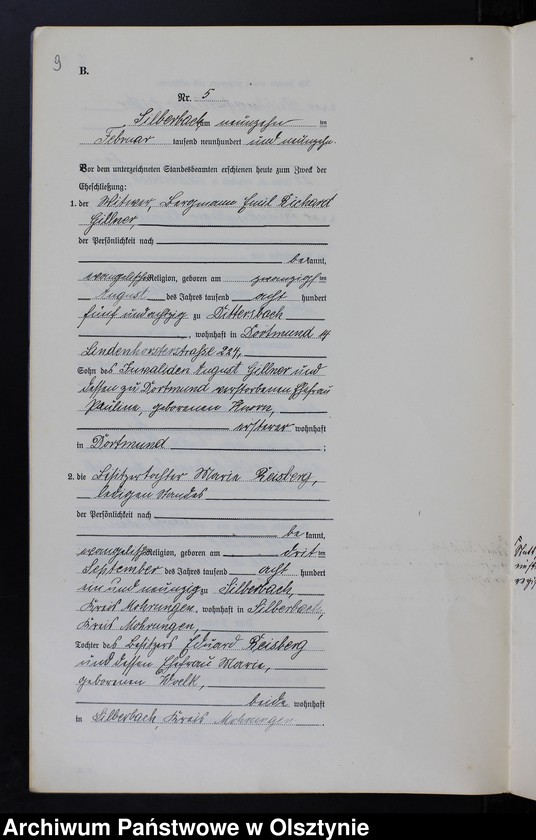 9
B.
Nr. 5
Silberbach am neunzehn ten
Februar tausend neunhundert und neunzehn.
Vor dem unterzeichneten Standesbeamten erschienen heute zum Zweck der
Eheschließung:
1. der Witwer, Bergmann Emil Richard
Gillner,
der Persönlichkeit nach
bekannt,
evangelischer Religion, geboren am zwanzigsten
August des Jahres tausend acht hundert
fünf und achtzig zu Dittersbach
, wohnhaft in Dortmund
Lindenhorsterstraße 224,
Sohn des Invaliden August Gillner und
dessen zu Dortmund verstorbenen Ehefrau
Pauline, geborenen Knorn,
ersterer wohnhaft
in Dortmund ;
2. die Besitzertochter Marie Reisberg,
ledigen Standes
der Persönlichkeit nach
be kannt,
evangelischer Religion, geboren am dritten
September des Jahres tausend acht hundert
ein und neunzig zu Silberbach,
Kreis Mohrungen, wohnhaft in Silberbach,
Kreis Mohrungen,
Tochter des Besitzers Eduard Reisberg
und dessen Ehefrau Marie,
geborenen Woelk,
beide wohnhaft
in Silberbach, Kreis Mohrungen.
Archiwum Państwowe w Olsztynie